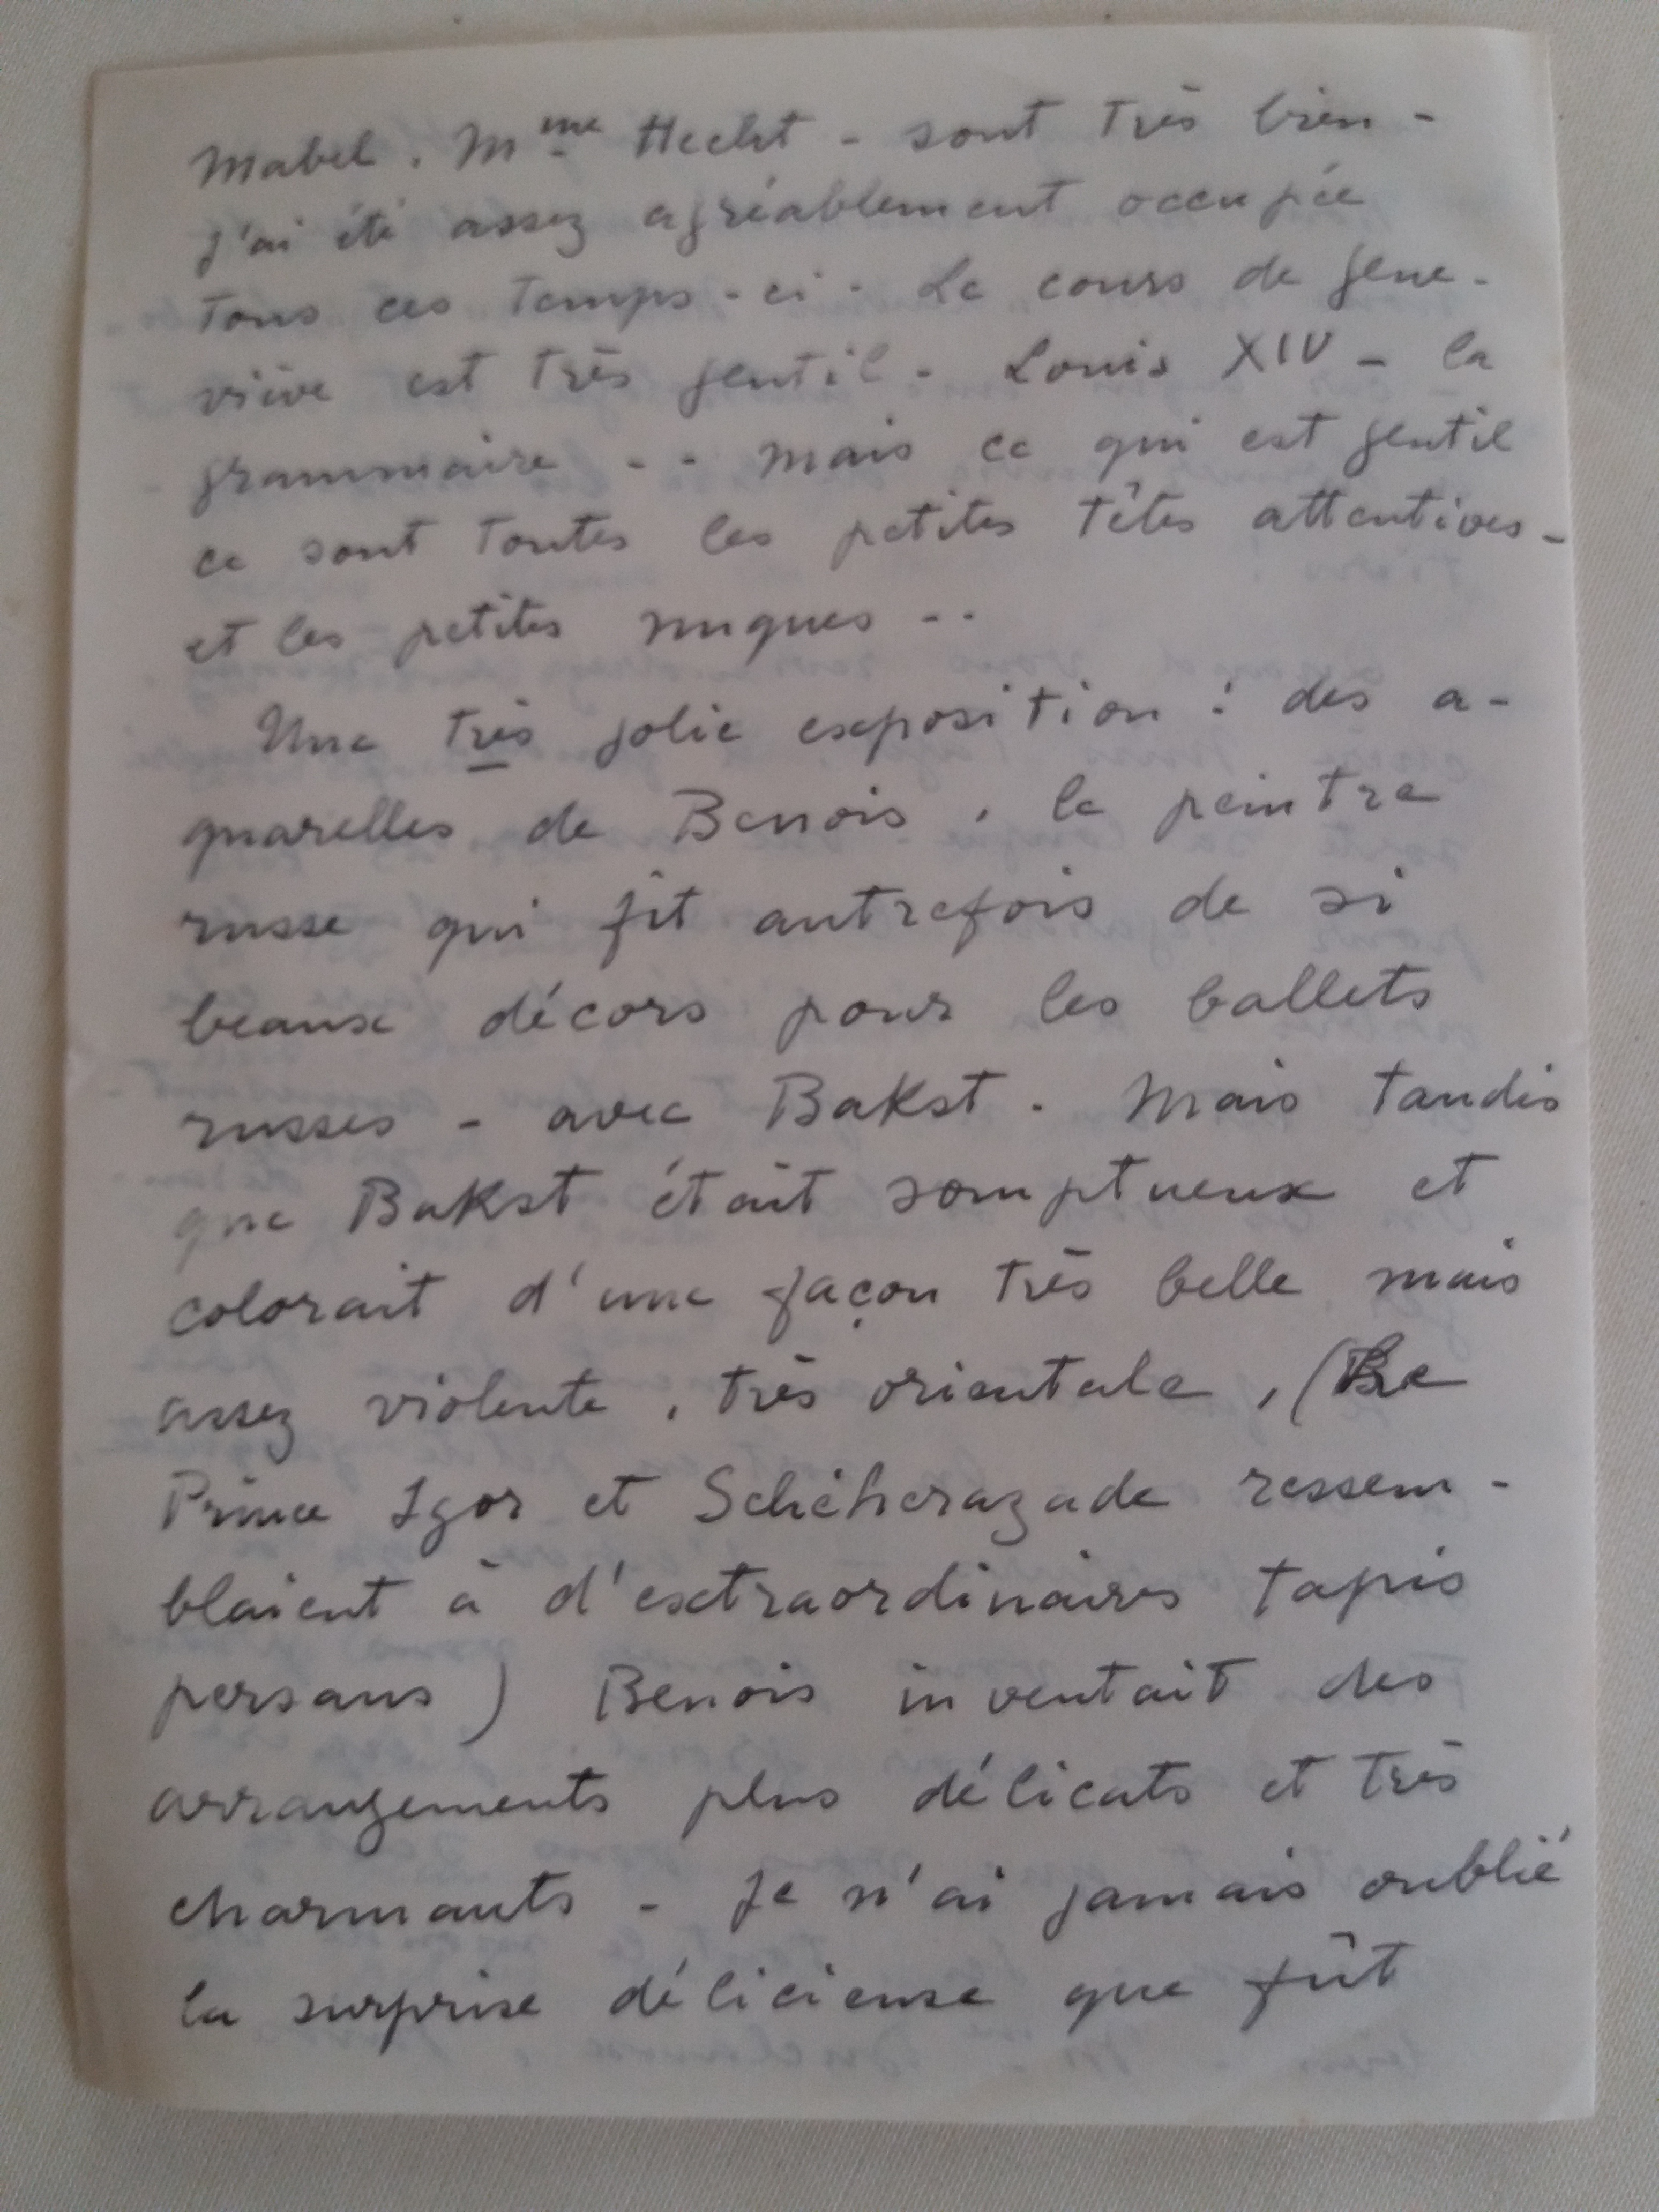 Mabel. Mme Hecht - sont très bien -
J'ai été assez agréablement occupée
tous ces temps-ci - Le cours de gene-
viève est très gentil - Louis XIV - la
grammaire - - mais ce qui est gentil
ce sont toutes les petites têtes attentives -
et les petites nuques - -
Une très jolie exposition : des a-
quarelles de Benois, le peintre
russe qui fit autrefois de si
beaux décors pour les ballets
russes - avec Bakst. Mais tandis
que Bakst était somptueux et
colorait d'une façon très belle mais
assez violente, très orientale, (Le
Prince Igor et Schéhérazade ressem-
blaient à d'extraordinaires tapis
persans) Benois inventait des
arrangements plus délicats et très
charmants - Je n'ai jamais oublié
la surprise délicieuse que fût